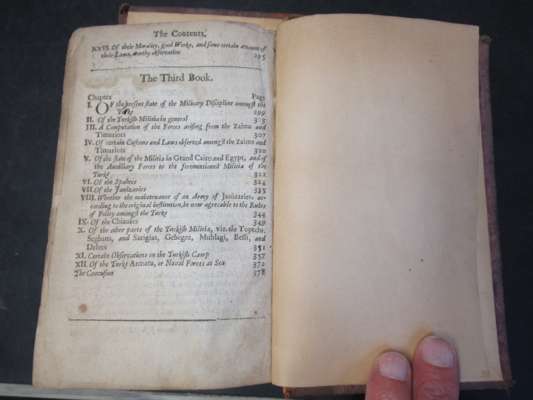 The Contents.
XXVI. Of their Morality, good Works, and some certain account of
their Laws, worthy observation 295
The Third Book.
Chapter Page
I. OF the present state of the Military Discipline amongst the
Turks 299
II. Of the Turkish Militia in general 303
III. A Computation of the Forces arising from the Zaims and
Timariots 307
IV. Of certain Customs and Laws observed amongst the Zaims and
Timariots 320
V. Of the state of the Militia in Grand Cairo and Egypt, and of
the Auxiliary Forces to the forementioned Militia of the
Turks 322
VI. Of the Spahees 324
VII. Of the Janizaries 335
VIII. Whether the maintenance of an Army of Janizaries, ac-
cording to the original Institution, be now agreeable to the Rules
of Policy amongst the Turks 344
IX. Of the Chiauses 349
X. Of the other parts of the Turkish Militia, viz. the Toptchi,
Seghans, and Sarigias, Muhlagi, Besli, and
Delees 351
XI. Certain Observations on the Turkish Camp 357
XII. Of the Turks Armata, or Naval Forces at Sea 370
The Conclusion 378